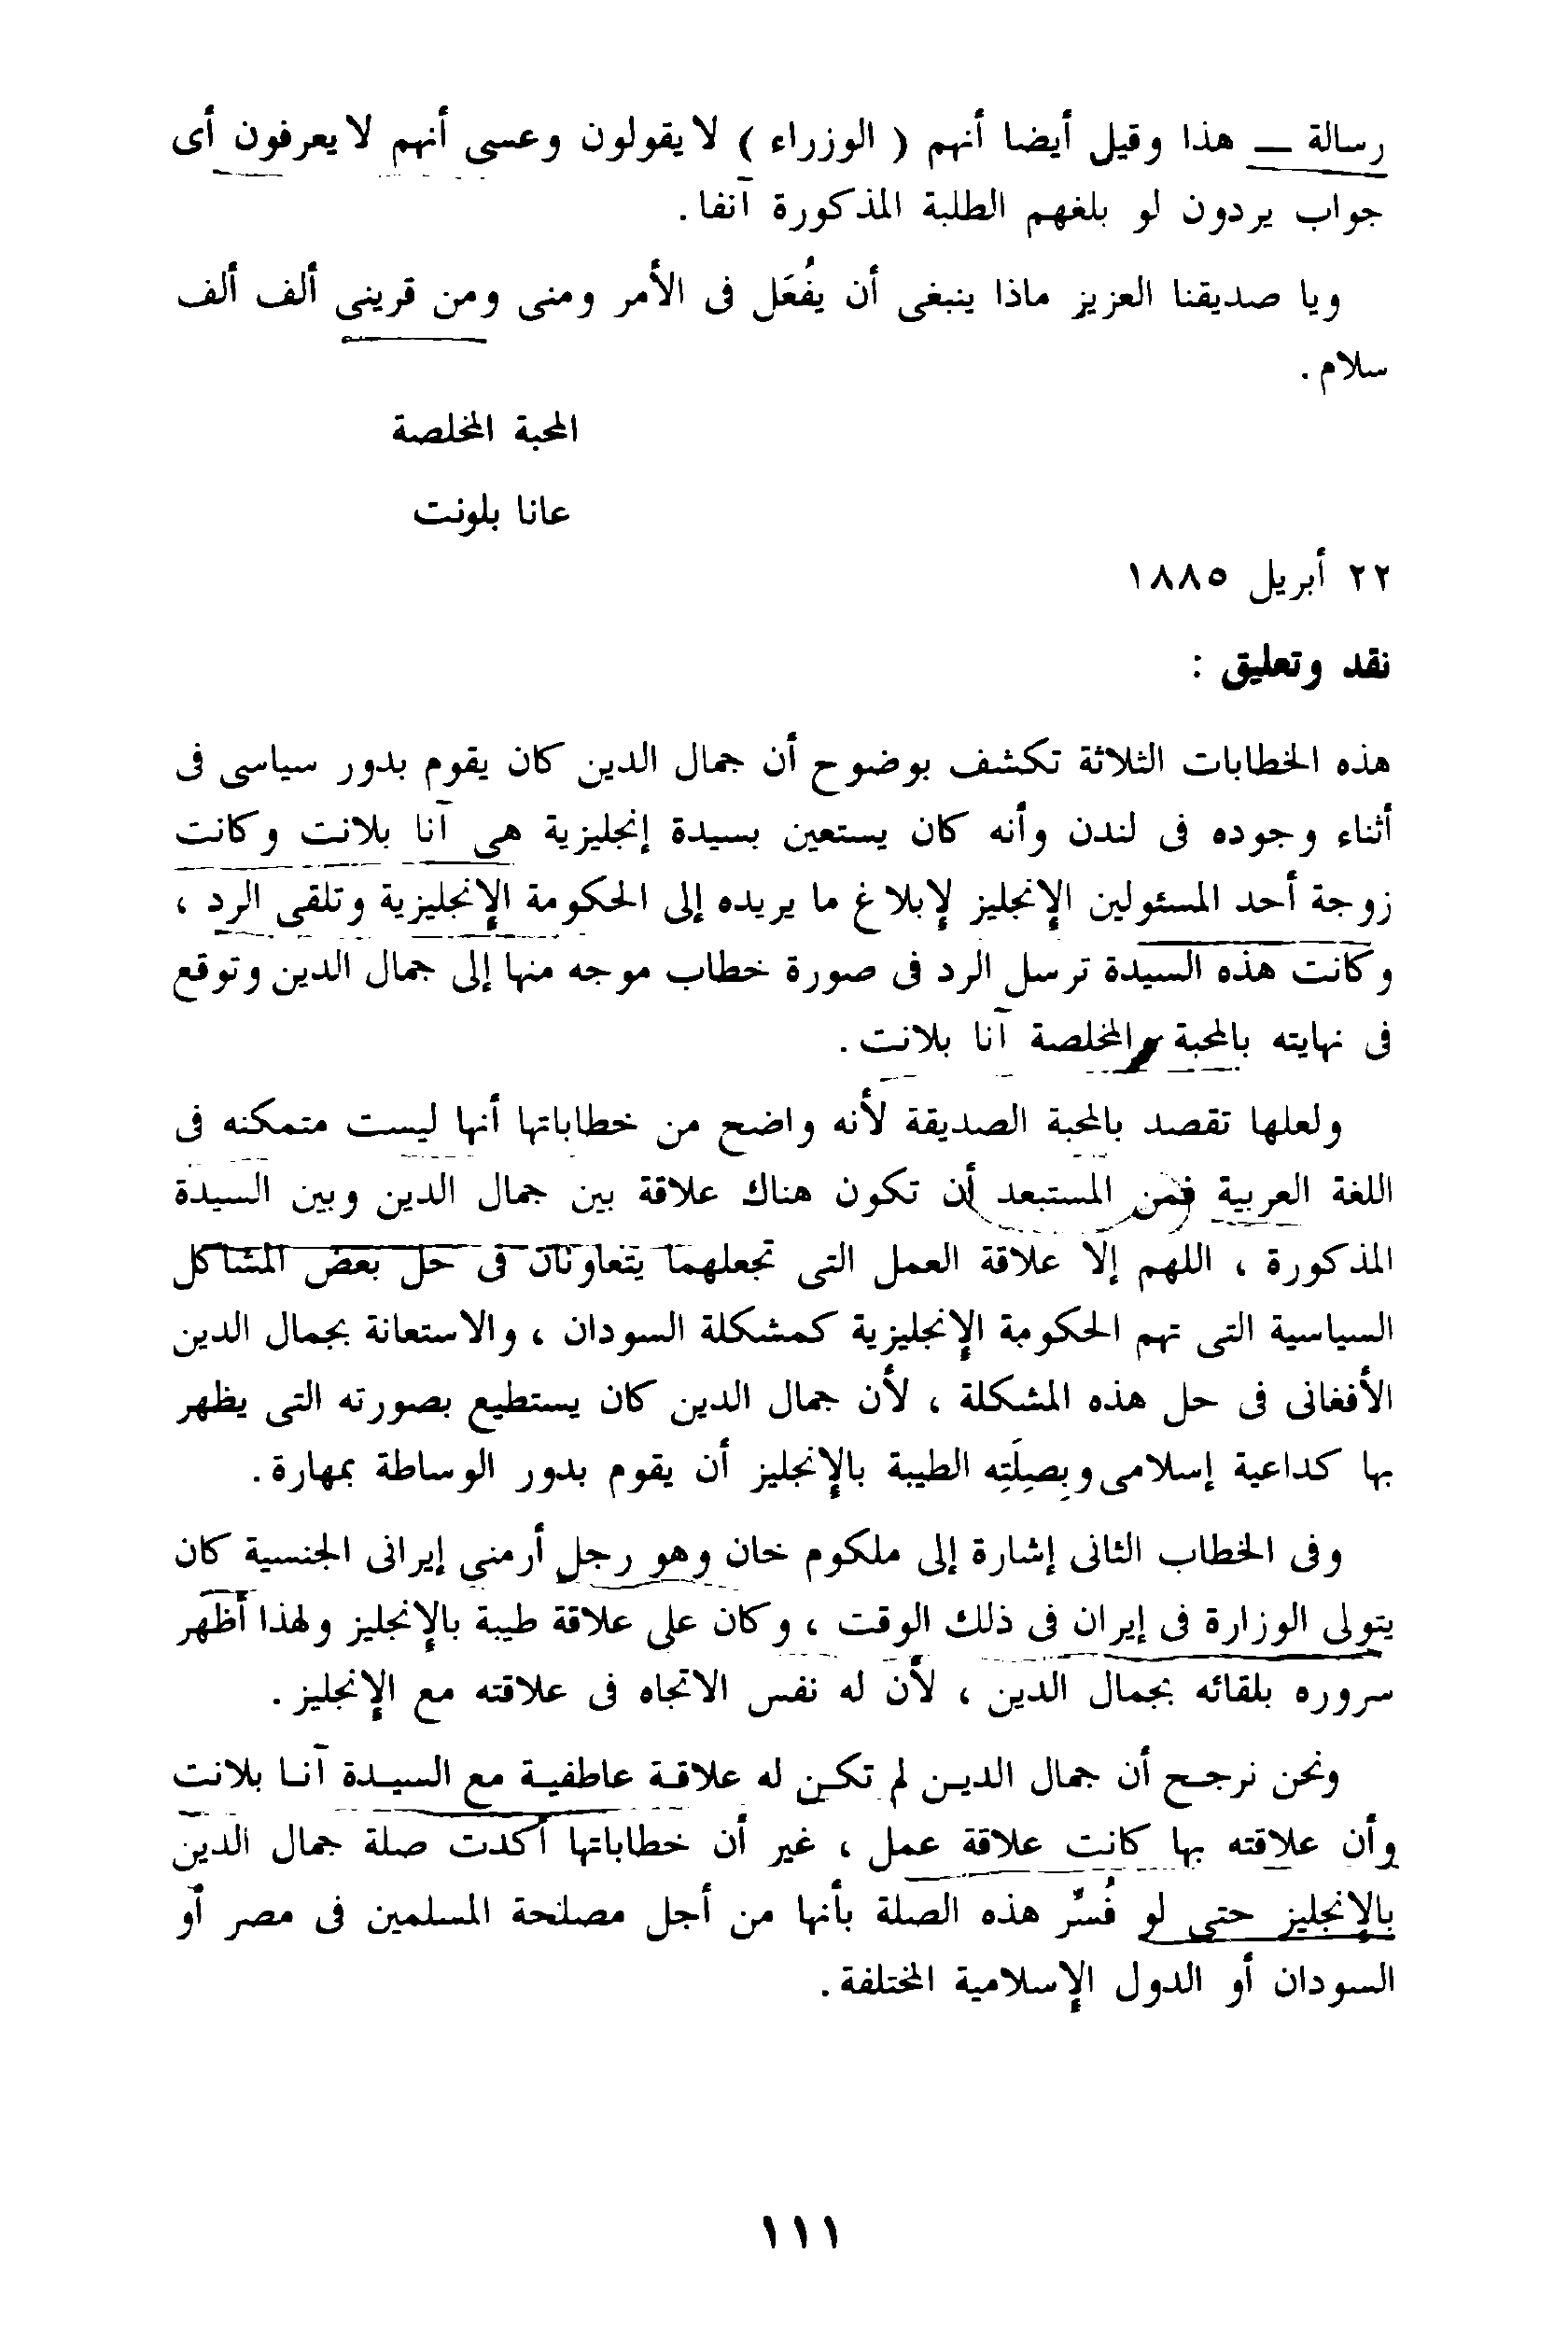 رسالة — هذا وقيل أيضا أنهم ( الوزراء ) لا يقولون وعسى أنهم لا يعرفون أى
جواب يردون لو بلغهم الطلبة المذكورة آنفا .
ويا صديقنا العزيز ماذا ينبغى أن يفُعَل فى الأمر ومنى ومن قرينى ألف ألف
سلام .
المحبة المخلصة
عانا بلونت
٢٢ أبريل ١٨٨٥
نقد وتعليق :
هذه الخطابات الثلاثة تكشف بوضوح أن جمال الدين كان يقوم بدور سياسى فى
أثناء وجوده فى لندن وأنه كان يستعين بسيدة إنجليزية هى آنا بلانت وكانت
زوجة أحد المسئولين الإنجليز لإبلاغ ما يريده إلى الحكومة الإنجليزية وتلقى الرد ،
وكانت هذه السيدة ترسل الرد فى صورة خطاب موجه منها إلى جمال الدين وتوقع
فى نهايته بالمحبة والمخلصة آنا بلانت .
ولعلها تقصد بالمحبة الصديقة لأنه واضح من خطاباتها أنها ليست متمكنه فى
اللغة العربية فمن المستبعد أن تكون هناك علاقة بين جمال الدين وبين السيدة
المذكورة ، اللهم إلا علاقة العمل التى تجعلهما يتعاونان فى حل بعض المشاكل
السياسية التى تهم الحكومة الإنجليزية كمشكلة السودان ، والاستعانة بجمال الدين
الأفغانى فى حل هذه المشكلة ، لأن جمال الدين كان يستطيع بصورته التى يظهر
بها كداعية إسلامى وبِصِلَتِه الطيبة بالإنجليز أن يقوم بدور الوساطة بمهارة .
وفى الخطاب الثانى إشارة إلى ملكوم خان وهو رجل أرمنى إيرانى الجنسية كان
يتولى الوزارة فى إيران فى ذلك الوقت ، وكان على علاقة طيبة بالإنجليز ولهذا أظهر
سروره بلقائه بجمال الدين ، لأن له نفس الاتجاه فى علاقته مع الإنجليز .
ونحن نرجح أن جمال الدين لم تكن له علاقة عاطفية مع السيدة آنا بلانت
وأن علاقته بها كانت علاقة عمل ، غير أن خطاباتها أكدت صلة جمال الدين
بالإنجليز حتى لو فُسِّر هذه الصلة بأنها من أجل مصلحة المسلمين فى مصر أو
السودان أو الدول الإسلامية المختلفة .
١١١